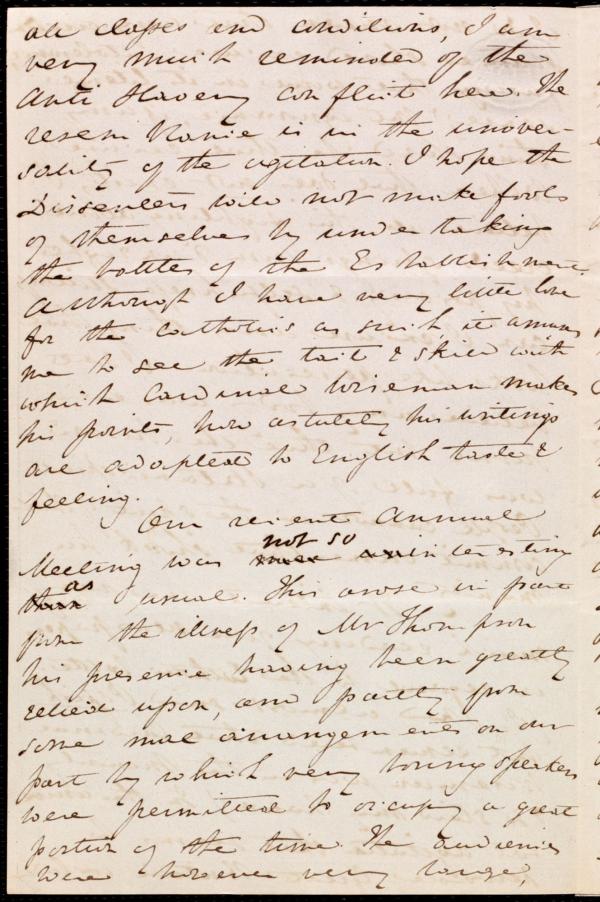 all classes and conditions, I am
very much reminded of the
Anti Slavery conflict here. The
resemblance is in the univer-
sality of the agitation. I hope the
Dissenters will not make fools
of themselves by undertaking
the battles of the Establishment.
Although I have very little love
for the Catholics as such it amuses
me to see the tact & skill with
which Cardinal Wiseman makes
his points, how astutely his writings
are adapted to English taste &
feeling.
Our recent Annual
not so
Meeting was interesting
as
than usual. This arose in part
from the illness of Mr Thompson
his presence having been greatly
relied upon, and partly from
some mal arrangements on our
part by which very boring speakers
were permitted to occupy a great
portion of the time. The audiences
were however very large,